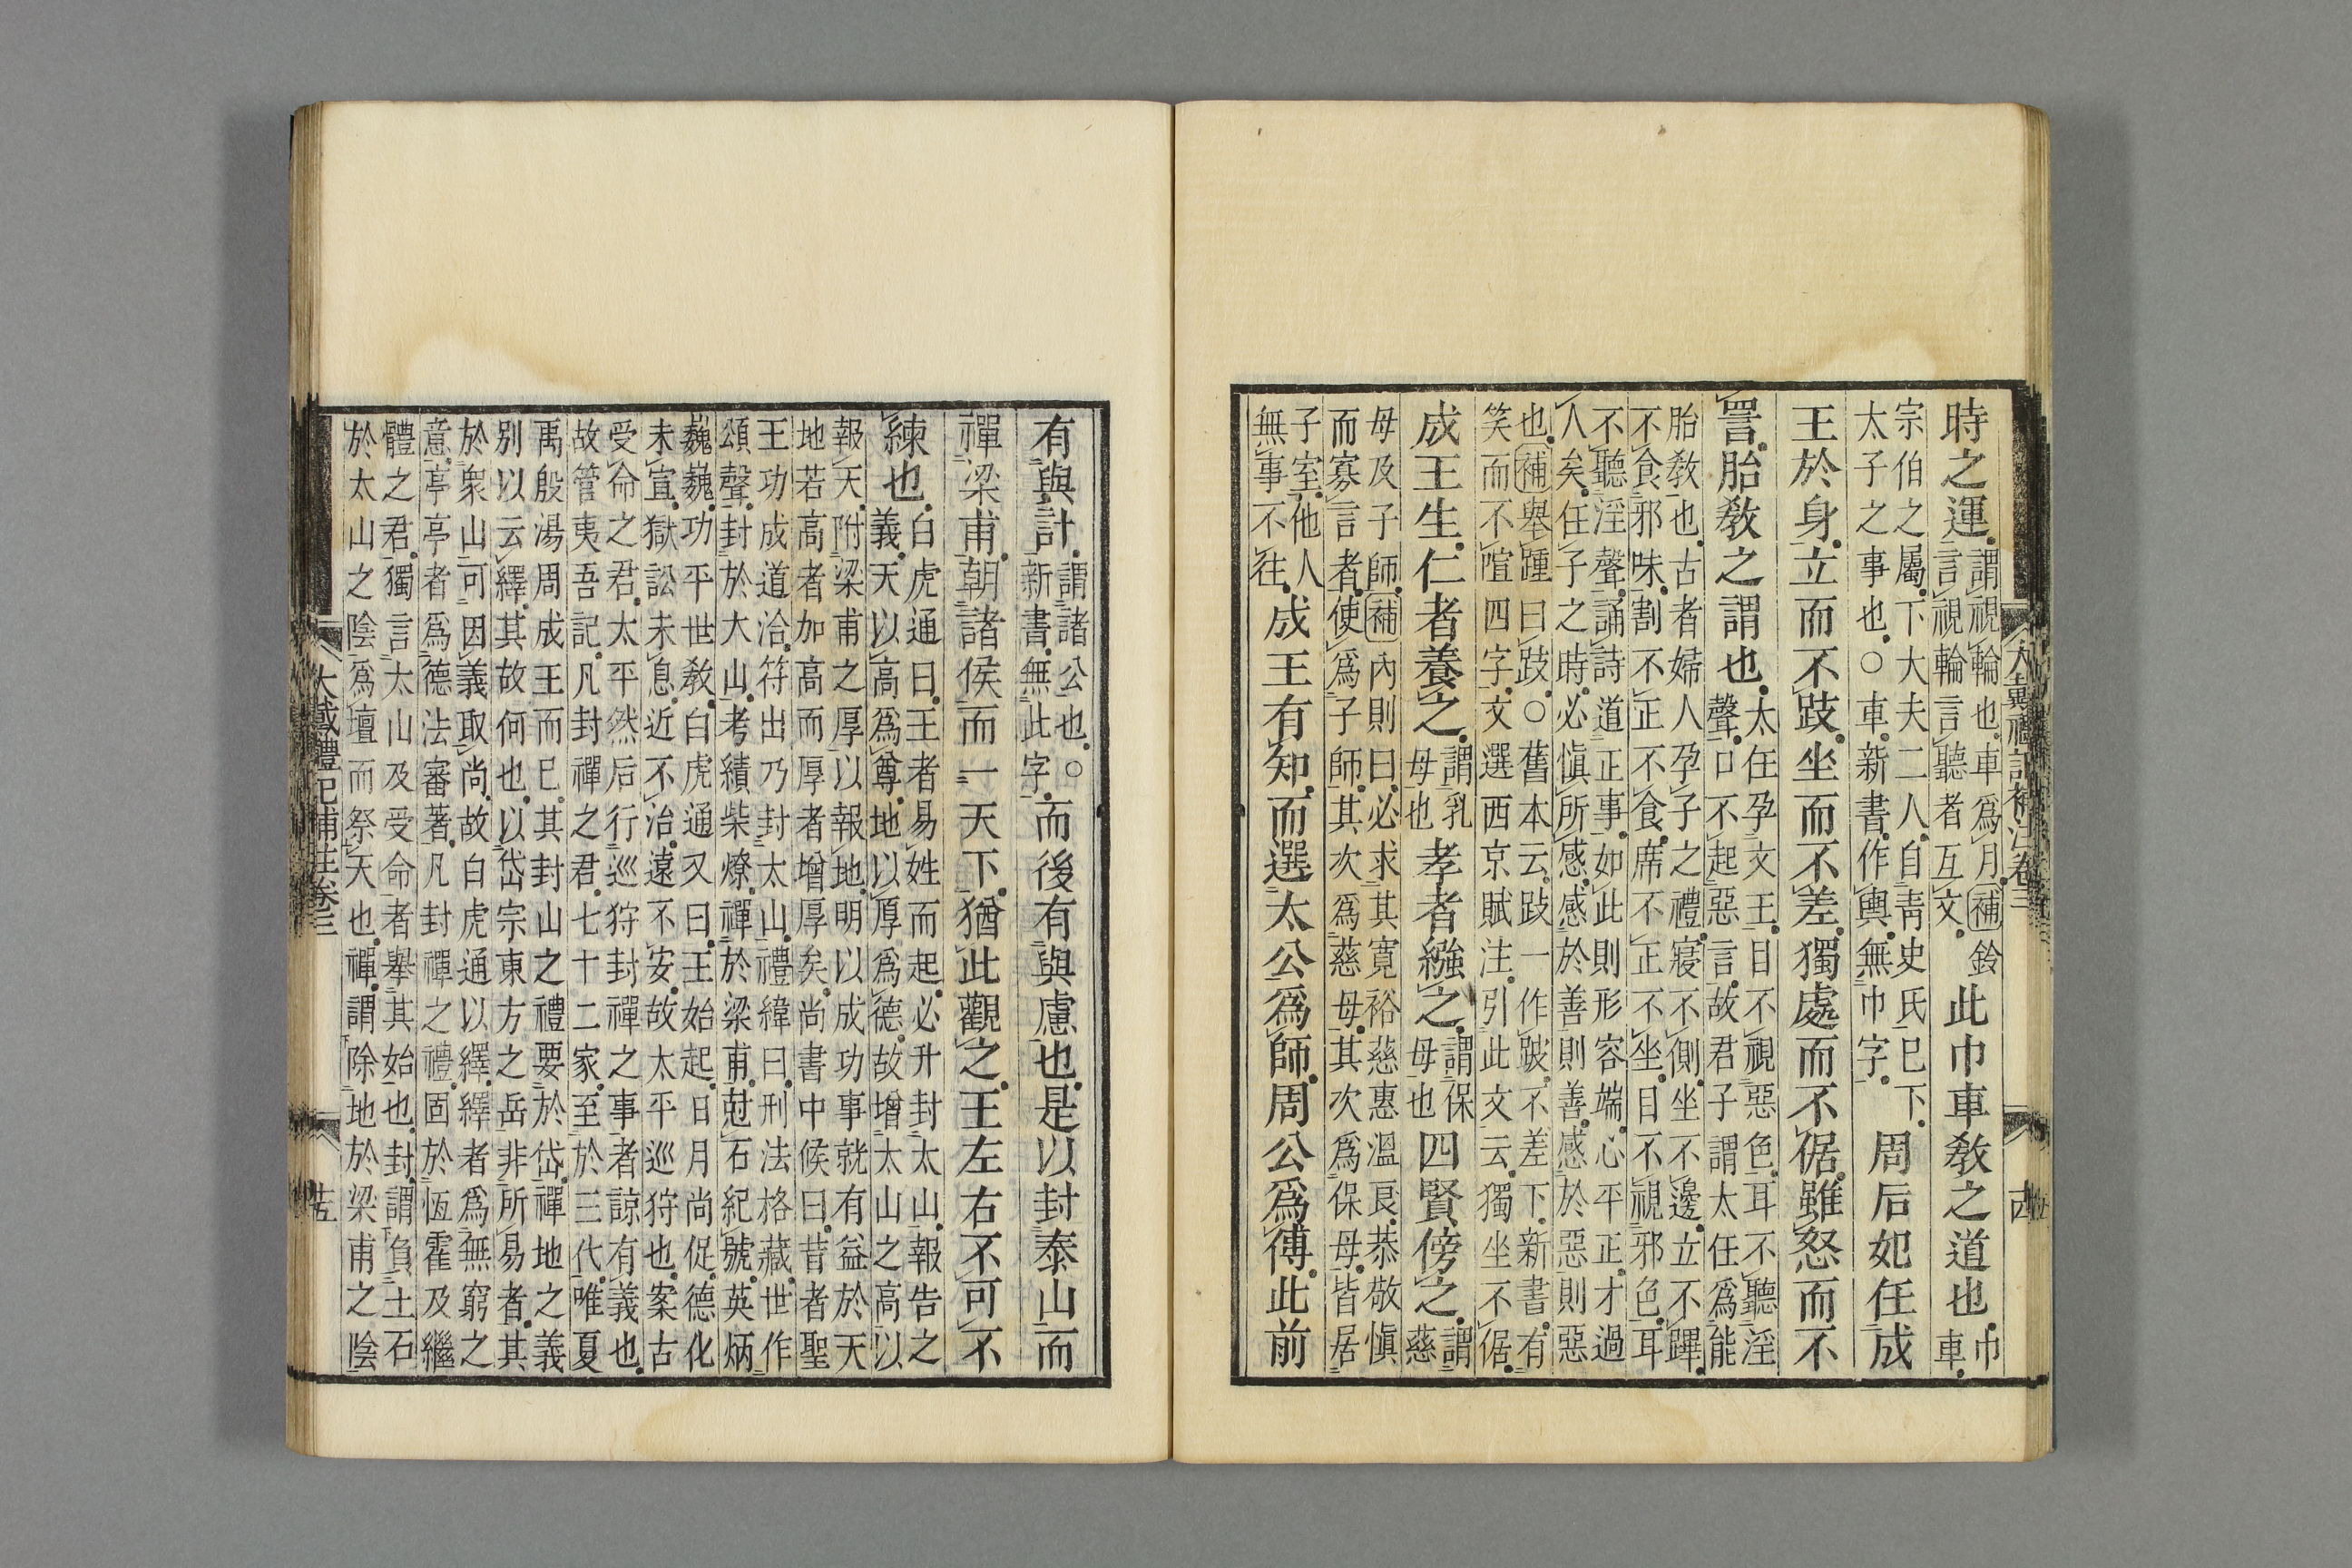 時之運。謂視輪也。車爲月。補鈴言視輪言聽者互文。此巾車敎之道也。巾車。
宗伯之屬。下大夫二人。自靑史氏已下。太子之事也。○車。新書。作輿。無巾字。周后妃任成
王於身。立而不跂。坐而不差。獨處而不倨。雖怒而不
詈。胎敎之謂也。太任孕文王。目不視惡色。耳不聽淫聲。口不起惡言。故君子謂太任爲能
胎敎也。古者婦人孕子之禮。寢不側。坐不邊。立不蹕。
不食邪味。割不正不食。席不正不坐。目不視邪色。耳
不聽淫聲。誦詩道正事。如此則形容端。心平正。才過
人矣。任子之時。必愼所感。感於善則善。感於惡則惡
也。補舉踵曰跂。○舊本云。跂一作跛。不差下。新書。有
笑而不諠四字。文選西京賦注。引此文云。獨坐不倨。
成王生。仁者養之。謂乳母也孝者繈之。謂保母也四賢傍之。謂慈
母及子師。補內則曰。必求其寬裕慈惠溫良。恭敬愼
而寡言者。使爲子師。其次爲慈母。其次爲保母。皆居
子室。他人無事不往。成王有知。而選太公爲師。周公爲傅。此前
大戴禮記補注卷三
有與計。謂諸公也。○新書。無此字。而後有與慮也。是以封泰山而
禪梁甫。朝諸侯而一天下。猶此觀之。王左右不可不
練也。白虎通曰。王者易姓而起。必升封太山。報告之義。天以高爲尊。地以厚爲德。故增太山之高以
報天。附梁甫之厚以報地。明以成功事就。有益於天
地。若高者加高而厚者增厚矣。尚書中候曰。昔者聖
王功成道洽。符出乃封太山。禮緯曰。刑法格藏。世作
頌聲。封於大山。考績柴燎。禪於梁甫。尅石紀號。英炳
巍巍。功平世敎。白虎通又曰。王始起。日月尚促。德化
未宣。獄訟未息。近不治。遠不安。故太平巡狩也。案古
受命之君。太平然后行巡狩封禪之事者。諒有義也。
故管夷吾記。凡封禪之君。七十二家。至於三代。唯夏
禹殷湯周成王而已。其封山之禮。要於岱。禪地之義。
別以云繹。其故何也。以岱宗東方之岳。非所易者。其
於衆山。可因義取尚。故白虎通以繹。繹者爲無窮之
意。亭亭者爲德法審著。凡封禪之禮。固於恆霍及繼
體之君。獨言太山及受命者。舉其始也。封謂負土石
於太山之陰。爲壇而祭天也。禪。謂除地於梁甫之陰
大戴禮記補注卷三